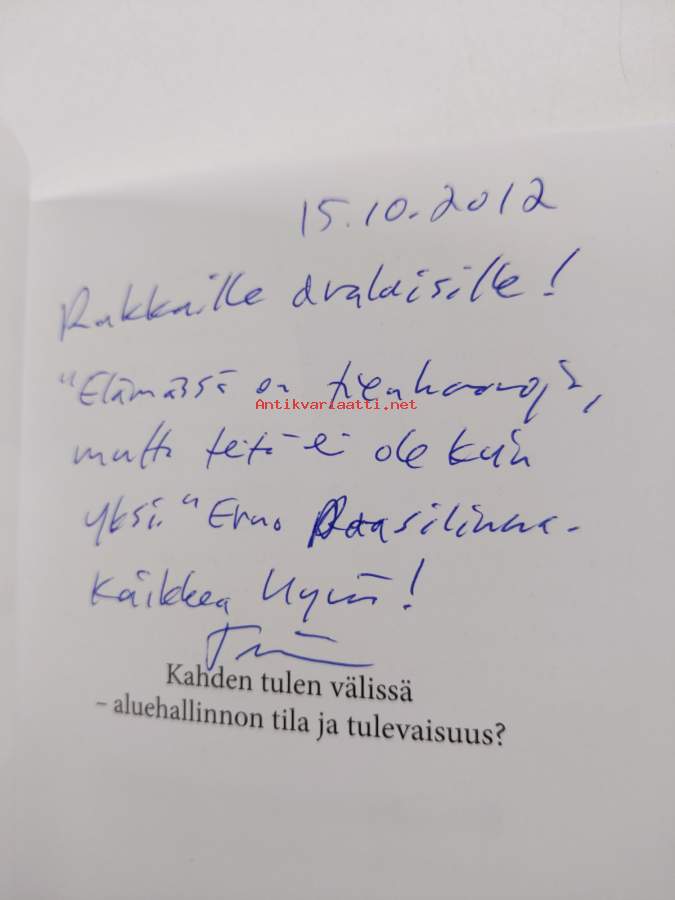 15.10.2012
Rakkaille avalaisille!
"Elämässä on tienhaaroja,
Antikvariaatti.net
mutta teitä ei ole kuin
yksi." Erno Paasilinna-
Kaikkea hyvää!
Kahden tulen välissä
– aluehallinnon tila ja tulevaisuus?